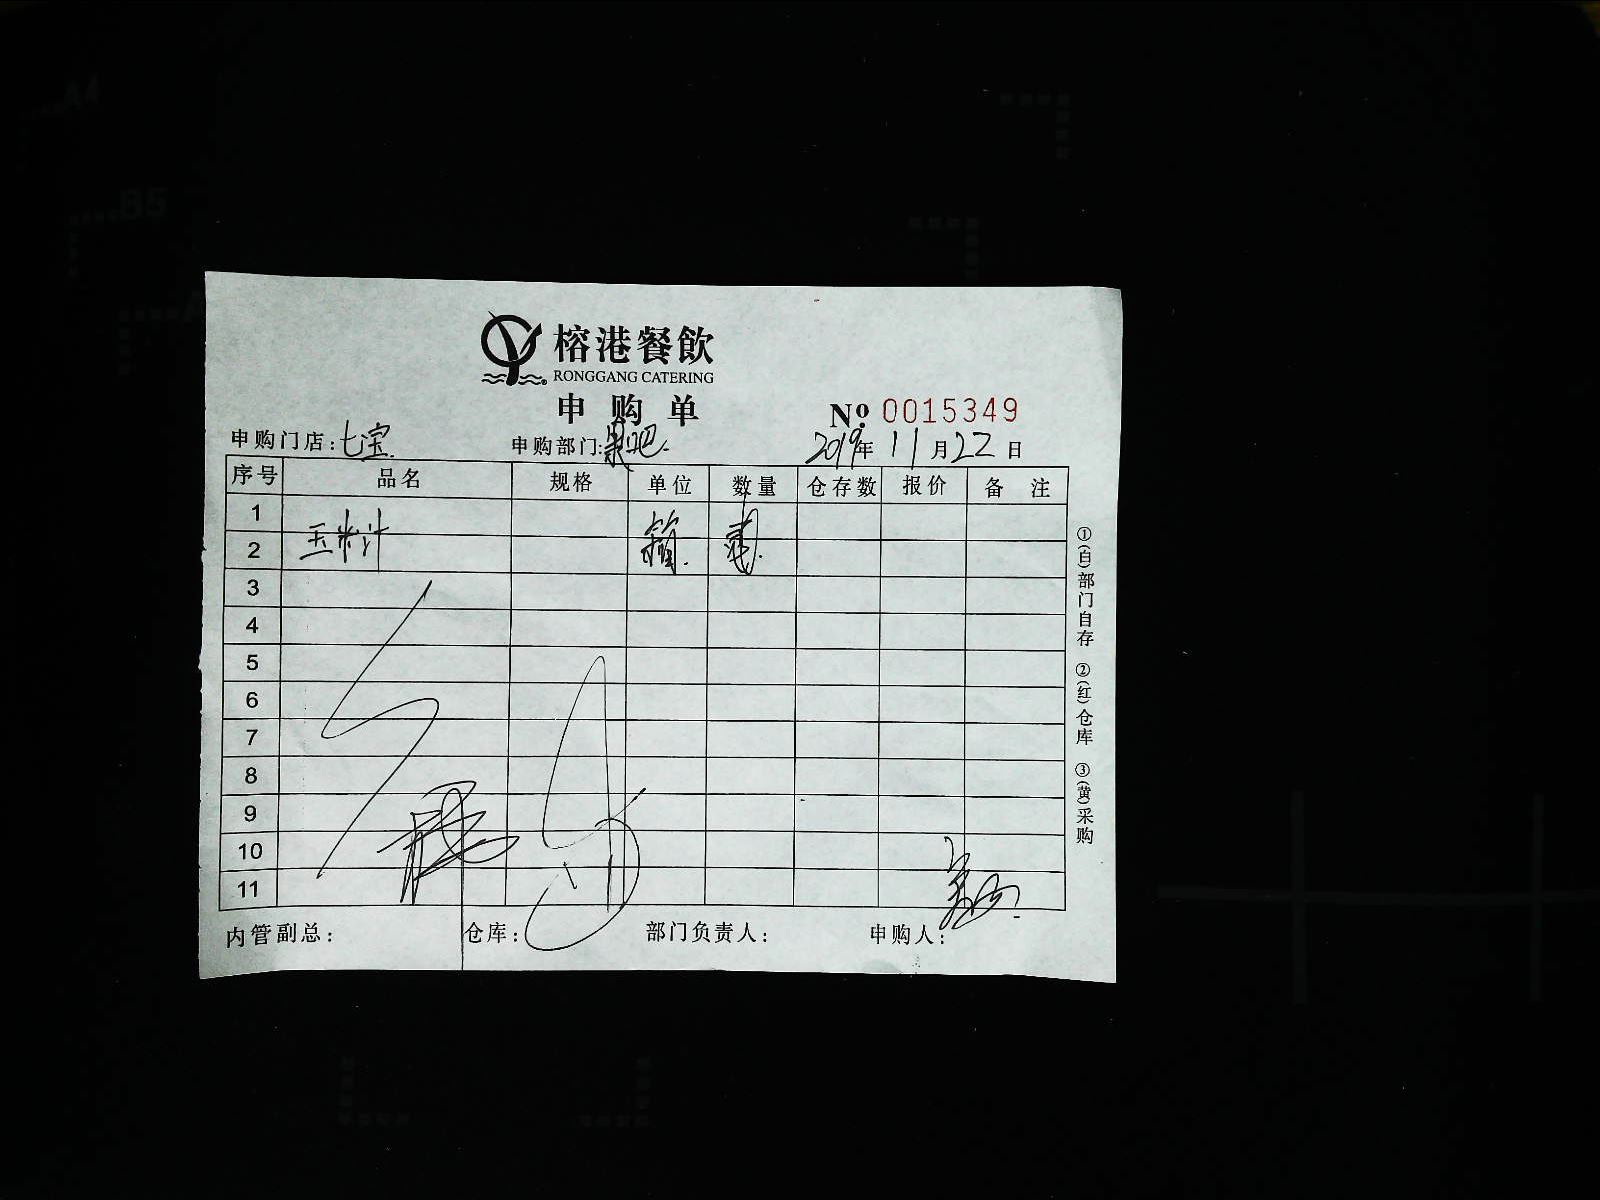 榕港餐飲
RONGGANG CATERING
申购单
№ 0015349
申购门店:七宝 申购部门:果吧 2019年11月22日
序号 品名 规格 单位 数量 仓存数 报价 备注
1
2 玉米汁 箱
3
4
5
6
7
8
9
10
11
内管副总: 仓库: 部门负责人: 申购人:
①(白)部门自存 ②(红)仓库 ③(黄)采购
A4
B5